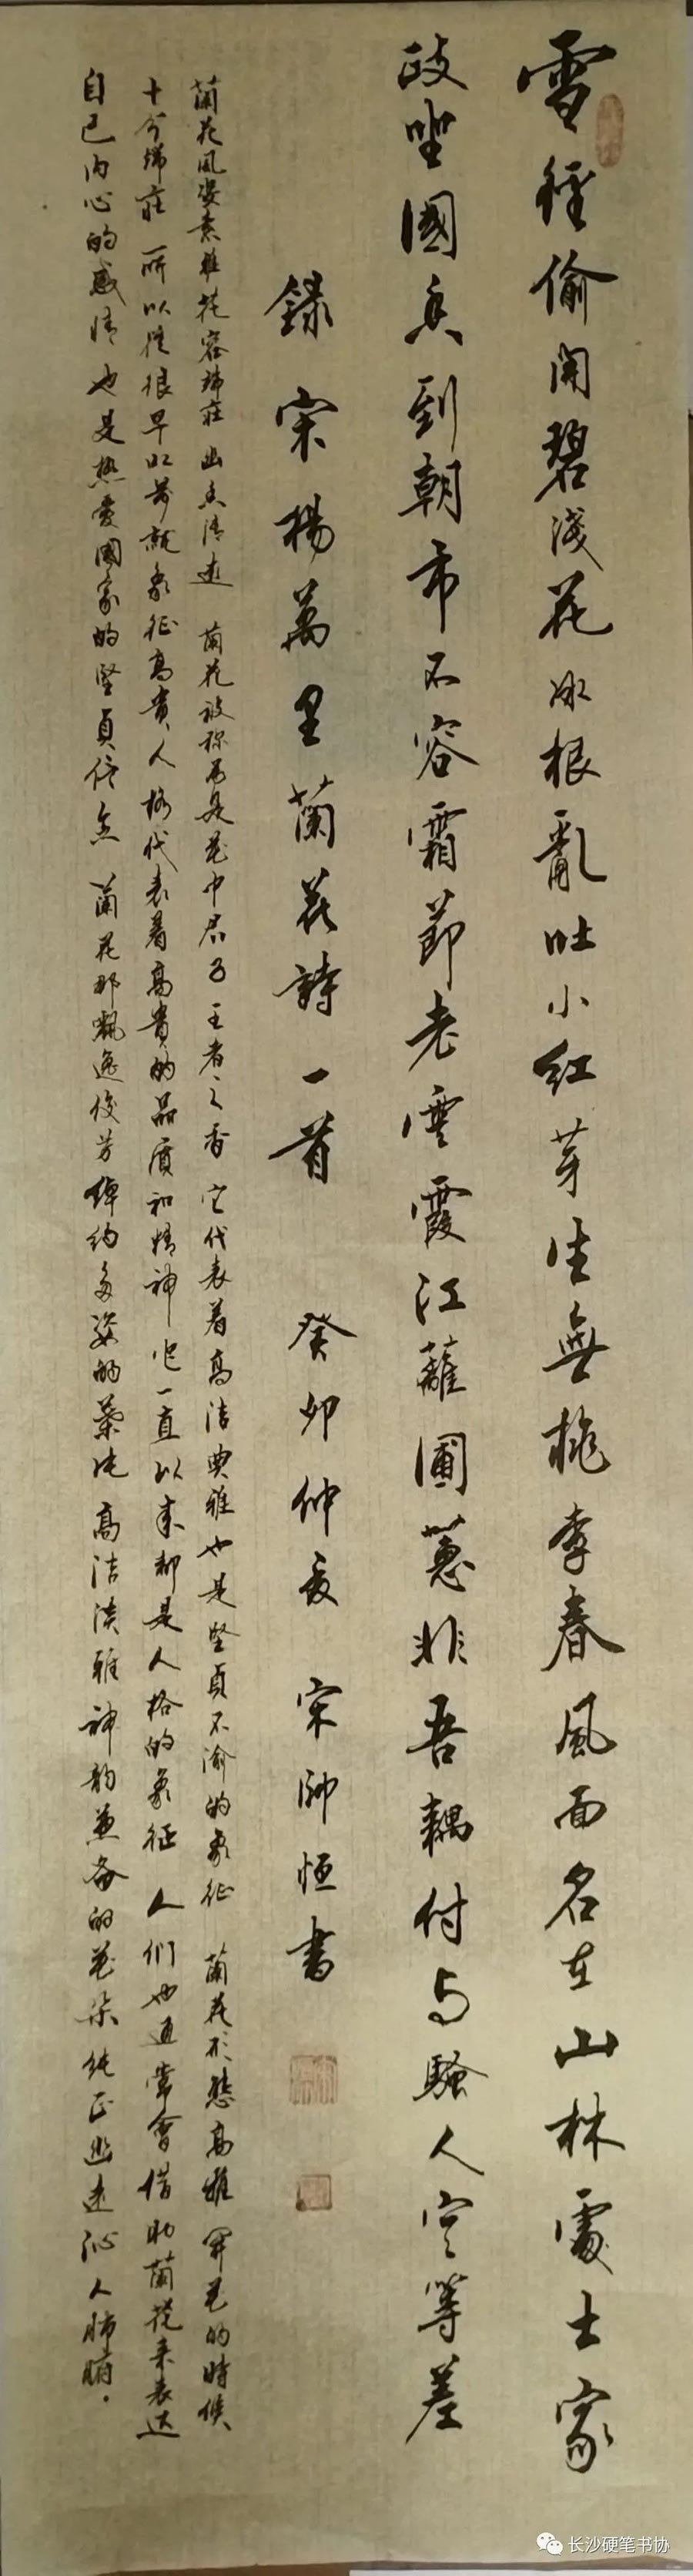 雪径偷開碧浅花冰根亂吐小红芽生無桃李春風面名在山林處士家
政坐國香到朝市不容霜節老雲霞江蘺圃蕙非吾耦付与騷人定等差
録宋楊萬里蘭花詩一首 癸卯仲夏 宋帥恒書
蘭花風姿素雅花容端莊 幽香清遠 蘭花被称为是花中君子王者之香 它代表着高洁典雅也是坚貞不渝的象征 蘭花形態高雅 開花的時候
十分端莊 所以从很早以前就象征高貴人格代表着高貴的品质和精神 它一直以来都是人格的象征 人们也通常會借助蘭花来表达
自己内心的感情 也是热愛國家的坚貞信念 蘭花那飘逸俊芳绰约多姿的葉片 高洁淡雅神韵兼备的花朵 纯正幽远沁人肺腑.
长沙硬笔书协